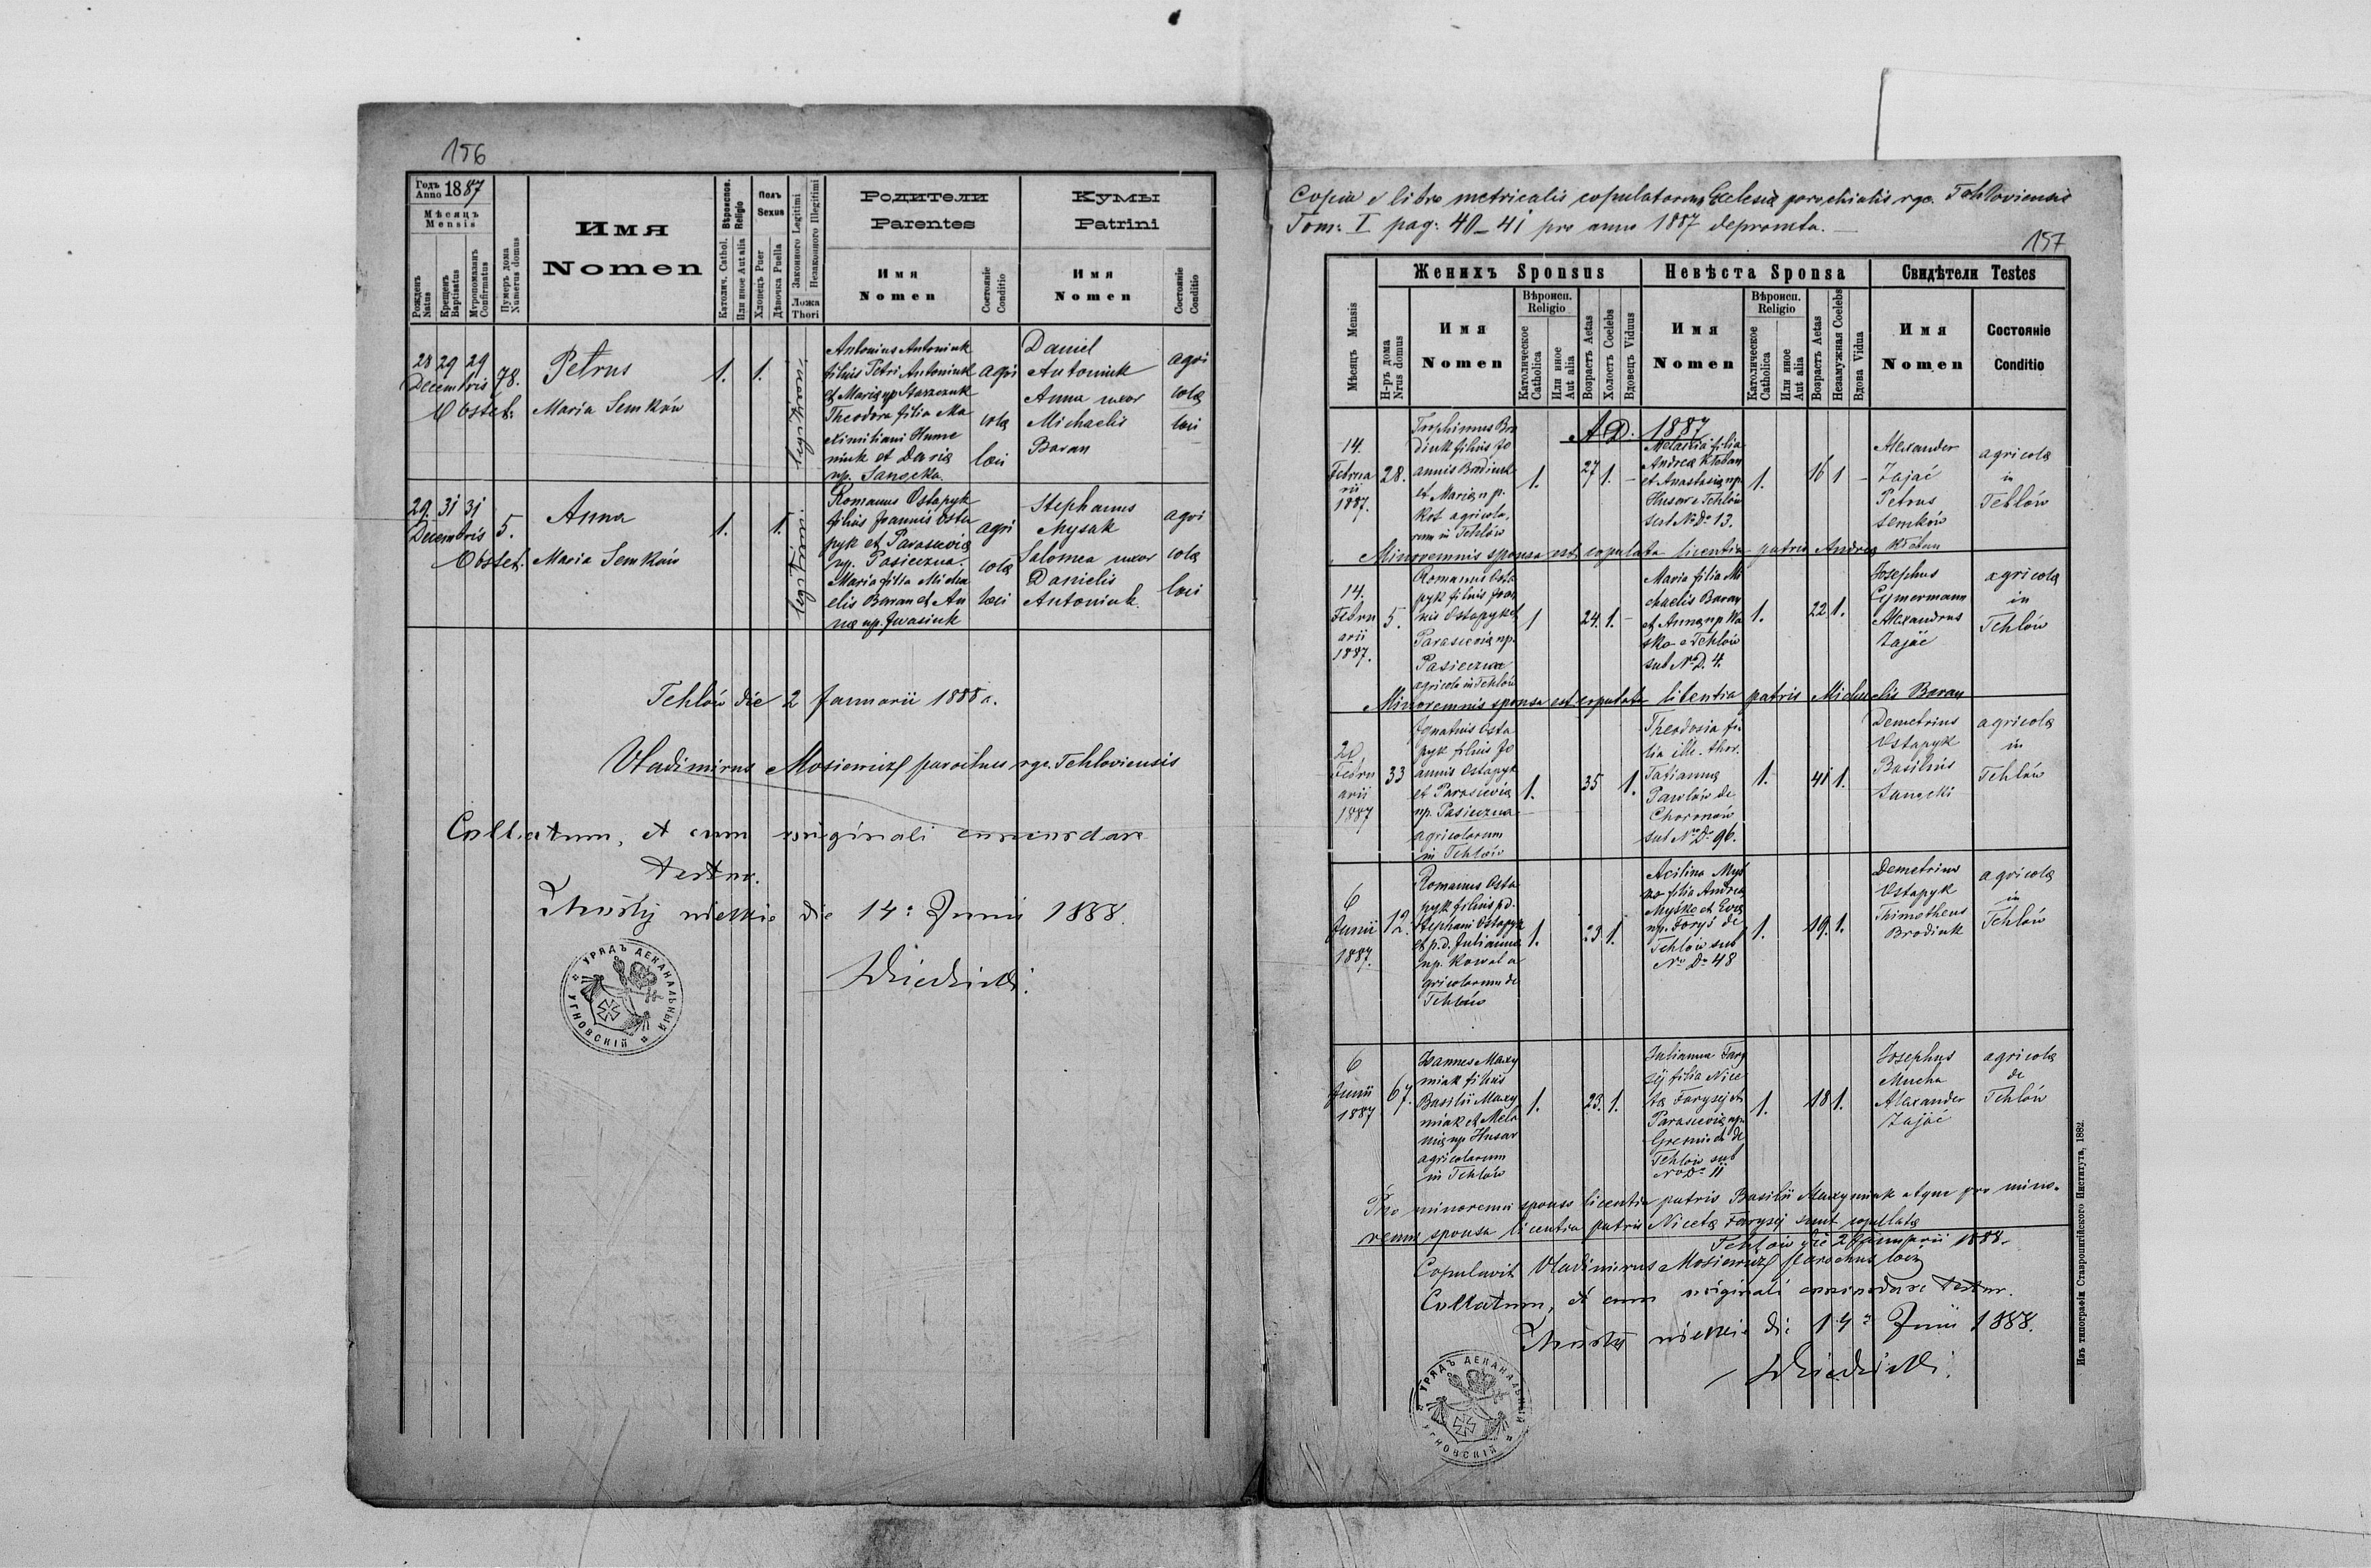 156
Годъ Anno 1887
Мѣсяцъ
Mensis
Рожденъ Natus
Крещенъ Baptisatus
Мѵропомазанъ Confirmatus
Нумеръ дома Numerus domus
Имя
Nomen
Вѣроиспов. Religio
Католич. Cathol.
Или иное Aut alia
Полъ
Sexus
Хлопецъ Puer
Дѣвочка Puella
Законного Legitimi
Незаконного Illegitimi
Ложа
Thori
Родители
Parentes
Имя
Nomen
Состояніе
Conditio
Кумы
Patrini
Имя
Nomen
Состояніе
Conditio
28 29 29
Decembris
78.
Petrus
Obstet: Maria Semków
1. 1.
Antonius Antoniuk
filius Petri Antoniuk
et Mariæ np
Theodora filia Ma
ximiliani Hume
niuk et Daria
np. Sanocka.
agri
colæ
loci
Daniel
Antoniuk
Anna uxor
Michaelis
Baran
agri
colæ
loci
29. 31 31
Decembris
5.
Anna
Obstet. Maria Semków
1. 1.
Romanus Ostapyk
filius Joannis Osta
pyk et Parascevia
np. Pasieczna.
Maria filia Micha
elis Baran et An
na np. Iwasiuk
agri
colæ
loci
Stephanus
Mysak
Salomea uxor
Danielis
Antoniuk.
agri
colæ
loci
Tehlów die 2 Januarii 1888 a.
Vladimirus Mosiewicz parochus rgc. Tehloviensis
Collatum, et cum originali concordare
testor.
die 14a Junii 1888.
УРЯДЪ ДЕКАНАЛЬНЫЙ УГНОВСКІЙ
Copia e libro metricalis copulatorum Eclesiæ parochialis rgc. Tehloviensis
Tom: I pag: 40-41 pro anno 1887 depromta.
157
Женихъ Sponsus
Невѣста Sponsa
Свидѣтели Testes
Мѣсяцъ Mensis
Н-ръ дома Nrus domus
Имя
Nomen
Вѣроисп.
Religio
Католическое Catholica
Или иное Aut alia
Возрастъ Aetas
Холостъ Coelebs
Вдовецъ Viduus
Имя
Nomen
Вѣроисп.
Religio
Католическое Catholica
Или иное Aut alia
Возрастъ Aetas
Незамужная Coelebs
Вдова Vidua
Имя
Nomen
Состояніе
Conditio
A. D. 1887
14.
Februa
rii
1887.
28.
Trophimus Bro
diuk filius Jo
annis Brodiuk
et Mariæ np.
Kot agricola
rum in Tehlów
1. 27 1. -
Melania filia
Andreæ Kłoban
et Anastasiæ np.
Husar e Tehlów
sub No Do 13.
1. 16 1 -
Alexander
Zając
Petrus
Semków
agricolæ
in
Tehlów
Minorennis sponsa est copulata licentia patris Andreæ Kłoban
14.
Febru
arii
1887.
5.
Romanus Osta
pyk filius Joan
nis Ostapyk et
Parasceviæ np.
Pasieczna
agricolæ in Tehlów
1 24. 1. -
Maria filia Mi
chaelis Baran
et Annæ np
e Tehlów
sub No D. 4.
1. 22 1.
Josephus
Cymermann
Alexandrus
Zając
agricolæ
in
Tehlów
Minorennis sponsa est copulata licentia patris Michaelis Baran
20
Febru
arii
1887
33
Ignatius Osta
pyk filius Jo
annis Ostapyk
et Parasceviæ
np. Pasieczna
agricolarum
in Tehlów
1. 35 1.
Theodosia fi
lia ille. thor.
Tatianna
Pawlów de
Choronów
sub No Do 96.
1. 41 1.
Demetrius
Ostapyk
Basilius
Sanocki
agricolæ
in
Tehlów
6
Junii
1887.
12.
Romanus Osta
pyk filius p.d.
Stephani Ostapyk
et p.d. Julianna
np. Kowal a
gricolarum de
Tehlów
1. 23 1.
Acilina Myś
ko filia Andreæ
Myśko et Eva
np. Foryś de
Tehlów sub
No Do 48
1. 19. 1.
Demetrius
Ostapyk
Thimotheus
Brodiuk
agricolæ
in
Tehlów
6
Junii
1887
67.
Joannes Maxy
miak filius
Basilii Maxy
miak et Mela
niæ np. Husar
agricolarum
in Tehlów
1. 23. 1.
Julianna Fary
sij filia Nice
tæ Farysij et
Parasceviæ np.
de
Tehlow sub
No Do 11
1. 18 1.
Josephus
Mucha
Alexander
Zając
agricolæ
de
Tehlów
Pro minorenni sponso licentia patris Basilii Maxymiak atque pro mino-
renni sponsa licentia patris Nicetæ Farysij sunt copulatæ
Tehlów die 2 Januarii 1888.
Copulavit Vladimirus Mosiewicz parochus loci
Collatum, et cum originali concordare testor.
die 14a Junii 1888.
УРЯДЪ ДЕКАНАЛЬНЫЙ УГНОВСКІЙ
Изъ типографіи Ставропигійского Института, 1882.